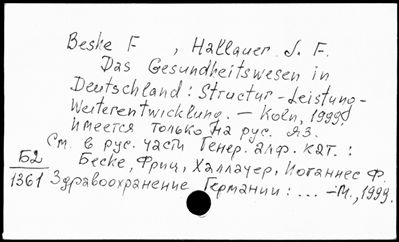 Beske F , Hallauer J. F.
Das Gesundheitswesen in
Deutschland: Structur-Leistung-
Weiterentwicklung. — Köln, 1999.
Имеется только на рус. яз.
См. в рус. части Генер. алф. кат.:
Беске, Фриц, Халлауер, Иоганнес Ф.
Здравоохранение Германии: ... —М., 1999.
Б2
1361